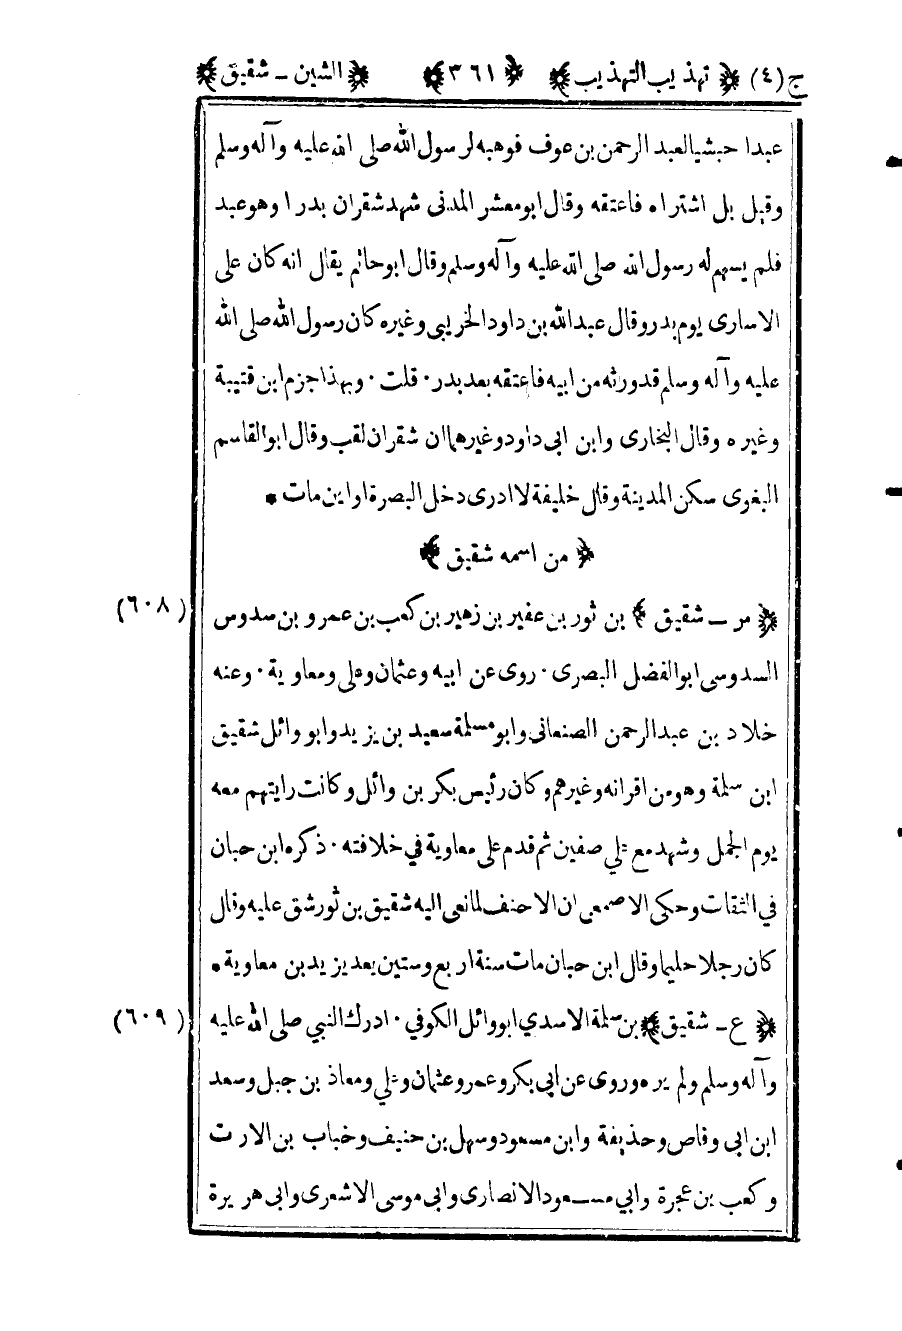 ج (٤) ﴿ تهذيب التهذيب ﴾ ﴿ ٣٦١ ﴾ ﴿ الشين ـ شقيق ﴾
عبدا حبشيا لعبد الرحمن بن عوف فوهبه لرسول الله صلى الله عليه وآله وسلم
وقيل بل اشتراه فاعتقه وقال ابو معشر المدنى شهد شقران بدرا وهو عبد
فلم يسهم له رسول الله صلى الله عليه وآله وسلم وقال ابو حاتم يقال انه كان على
الاسارى يوم بدر وقال عبدالله بن داود الخريبى وغيره كان رسول الله صلى الله
عليه وآله وسلم قد ورثه من ابيه فاعتقه بعد بدر · قلت · وبهذا جزم ابن قتيبة
وغيره وقال البخارى وابن ابى داود وغيرهما ان شقران لقب وقال ابو القاسم
البغوى سكن المدينة وقال خليفة لا ادرى دخل البصرة او اين مات •
﴿ من اسمه شقيق ﴾
﴿ مر ـ شقيق ﴾ بن ثور بن عفير بن زهير بن كعب بن عمرو بن سدوس (٦٠٨)
السدوسى ابو الفضل البصرى · روى عن ابيه وعثمان وعلى ومعاوية · وعنه
خلاد بن عبدالرحمن الصنعانى وابو مسلمة سعيد بن يزيد وابو وائل شقيق
ابن سلمة وهو من اقرانه وغيرهم وكان رئيس بكر بن وائل وكانت رايتهم معه
يوم الجمل وشهد مع علي صفين ثم قدم على معاوية في خلافته · ذكره ابن حبان
في الثقات وحكى الاصمعى ان الاحنف لما نعى اليه شقيق بن ثور شق عليه وقال
كان رجلا حليما وقال ابن حبان مات سنة اربع وستين بعد يزيد بن معاوية •
﴿ ع ـ شقيق ﴾ بن سلمة الاسدي ابو وائل الكوفي · ادرك النبي صلى الله عليه (٦٠٩)
وآله وسلم ولم يره وروى عن ابى بكر وعمر وعثمان وعلي ومعاذ بن جبل وسعد
ابن ابى وقاص وحذيفة وابن مسعود وسهل بن حنيف وخباب بن الارت
وكعب بن عجرة وابي مسعود الانصارى وابى موسى الاشعرى وابى هريرة